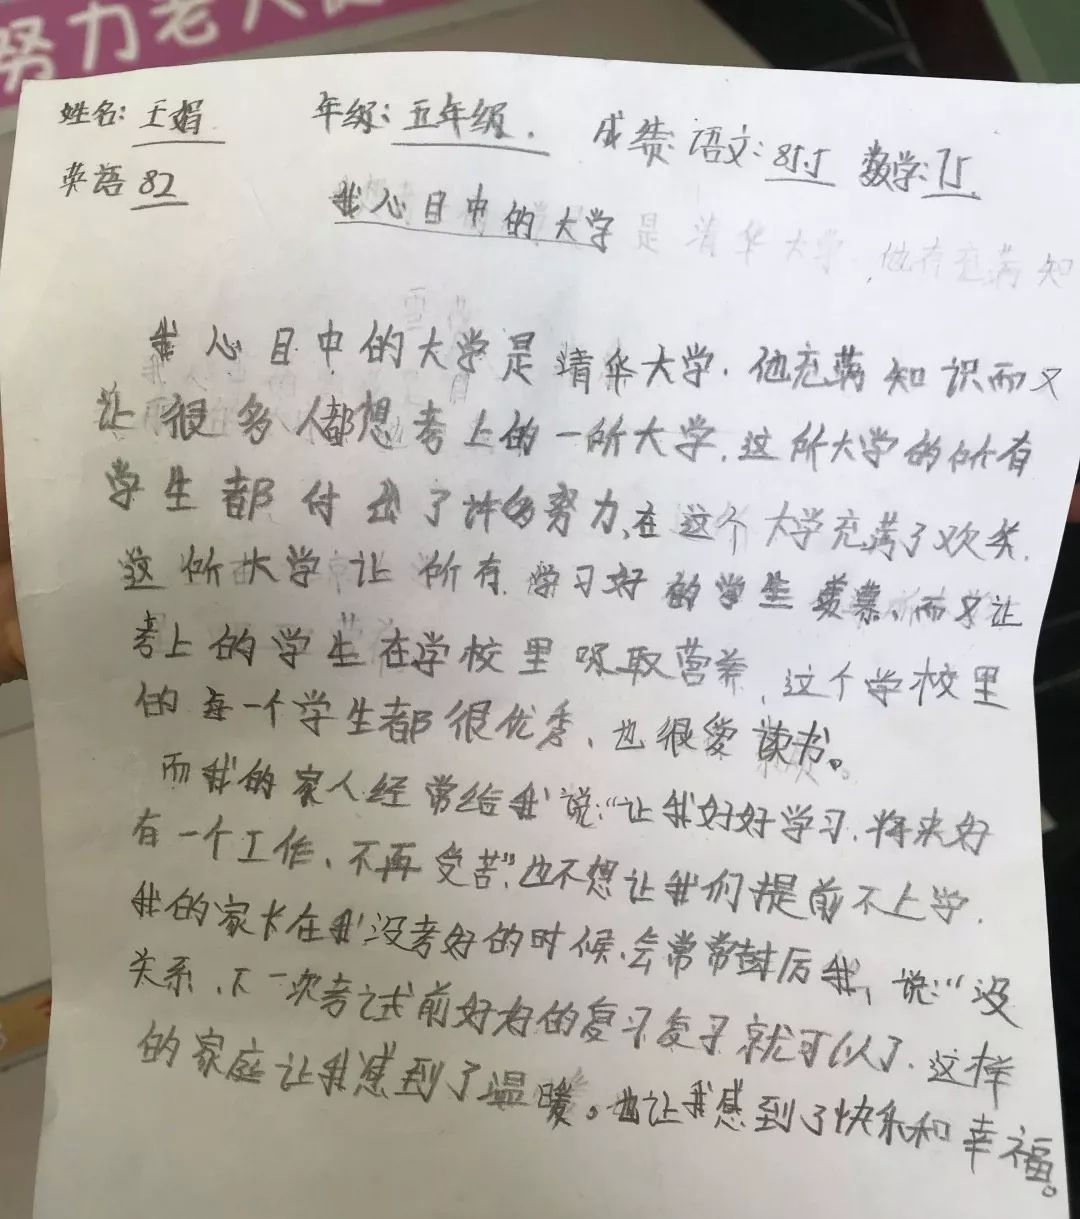 努力老人
姓名：王娟 年级：五年级. 成绩：语文：85.5 数学：75
英语 82
我心目中的大学
是清华大学，他有充满知
我心目中的大学是清华大学.他充满知识而又
让很多人都想考上的一所大学.这所大学的所有
学生都付出了许多努力、在这个大学充满了欢笑.
这所大学让所有学习好的学生羡慕、而又让
考上的学生在学校里吸取营养，这个学校里
的每一个学生都很优秀、也很爱读书。
而我的家人经常给我说：“让我好好学习.将来好
有一个工作、不再受苦”，也不想让我们提前不上学.
我的家长在我没考好的时候、会常常鼓厉我，说：“没
关系、下一次考试前好好的复习复习就可以了.这样
的家庭让我感到了温暖。也让我感到了快乐和幸福。